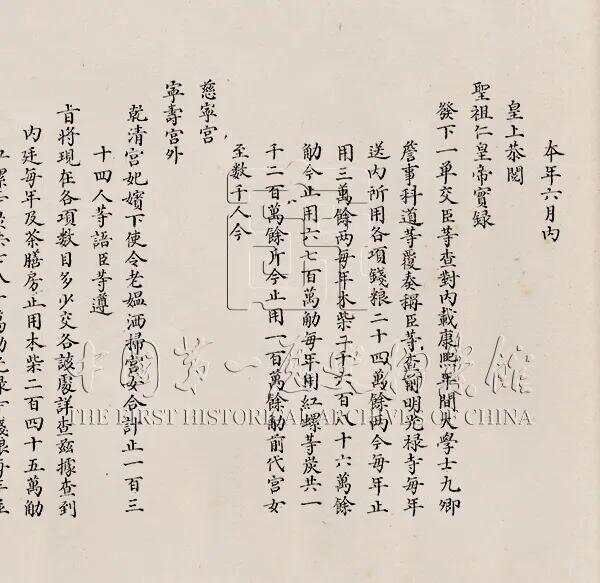 本年六月内
皇上恭閱
聖祖仁皇帝實録
發下一单交臣等查對内載康熙年間大學士九卿
詹事科道等覆奏稱臣等查前明光禄寺每年
送内所用各項錢粮二十四萬餘两今每年止
用三萬餘两每年木柴二千六百八十六萬餘
觔今止用六七百萬觔每年用紅螺等炭共一
千二百萬餘斤今止用一百萬餘觔前代宫女
至數千人今
慈寧宫、
寧壽宫外
乾清宫妃嬪下使令老媪洒掃宫女合計止一百三
十四人等語臣等遵
旨將現在各項數目多少交各該處詳查兹據查到
内廷每年及茶膳房止用木柴二百四十五萬觔
中國第一歷史檔案館
THE FIRST HISTORICAL ARCHIVES OF CHINA